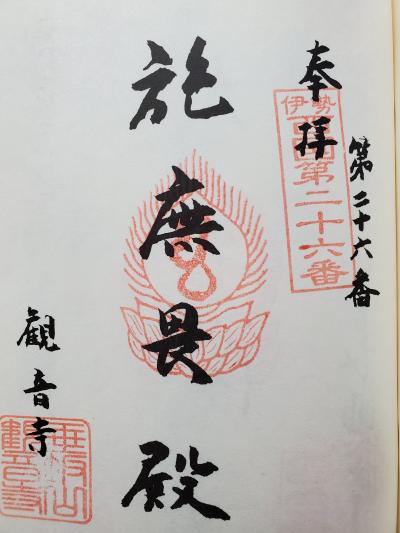 奉拝
第二十六番
伊勢
西国第二十六番
施無畏殿
観音寺